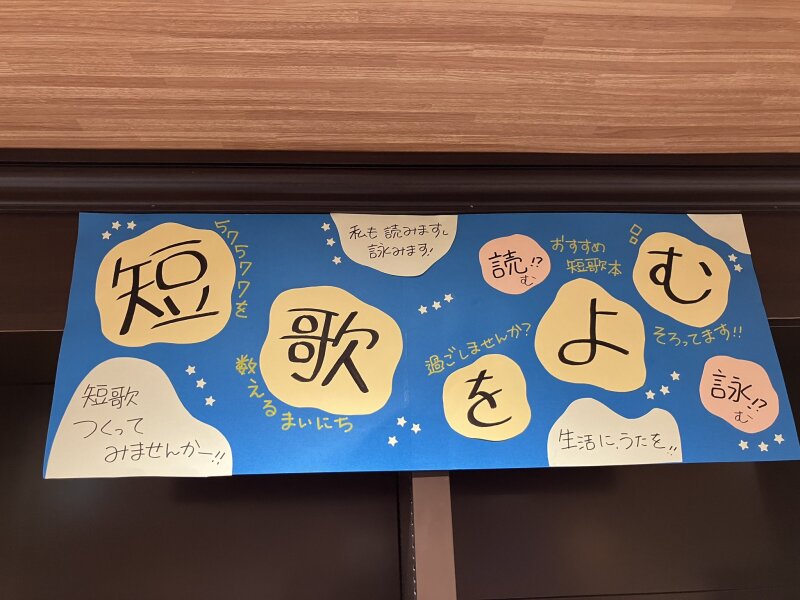 短歌をよむ
57577を
数えるまいにち
過ごしませんか?
私も読みますし
詠みます!
読!?
む
おすすめ
短歌本
そろってます!!
詠!?
む
短歌
つくって
みませんかー!!
生活に、うたを!!